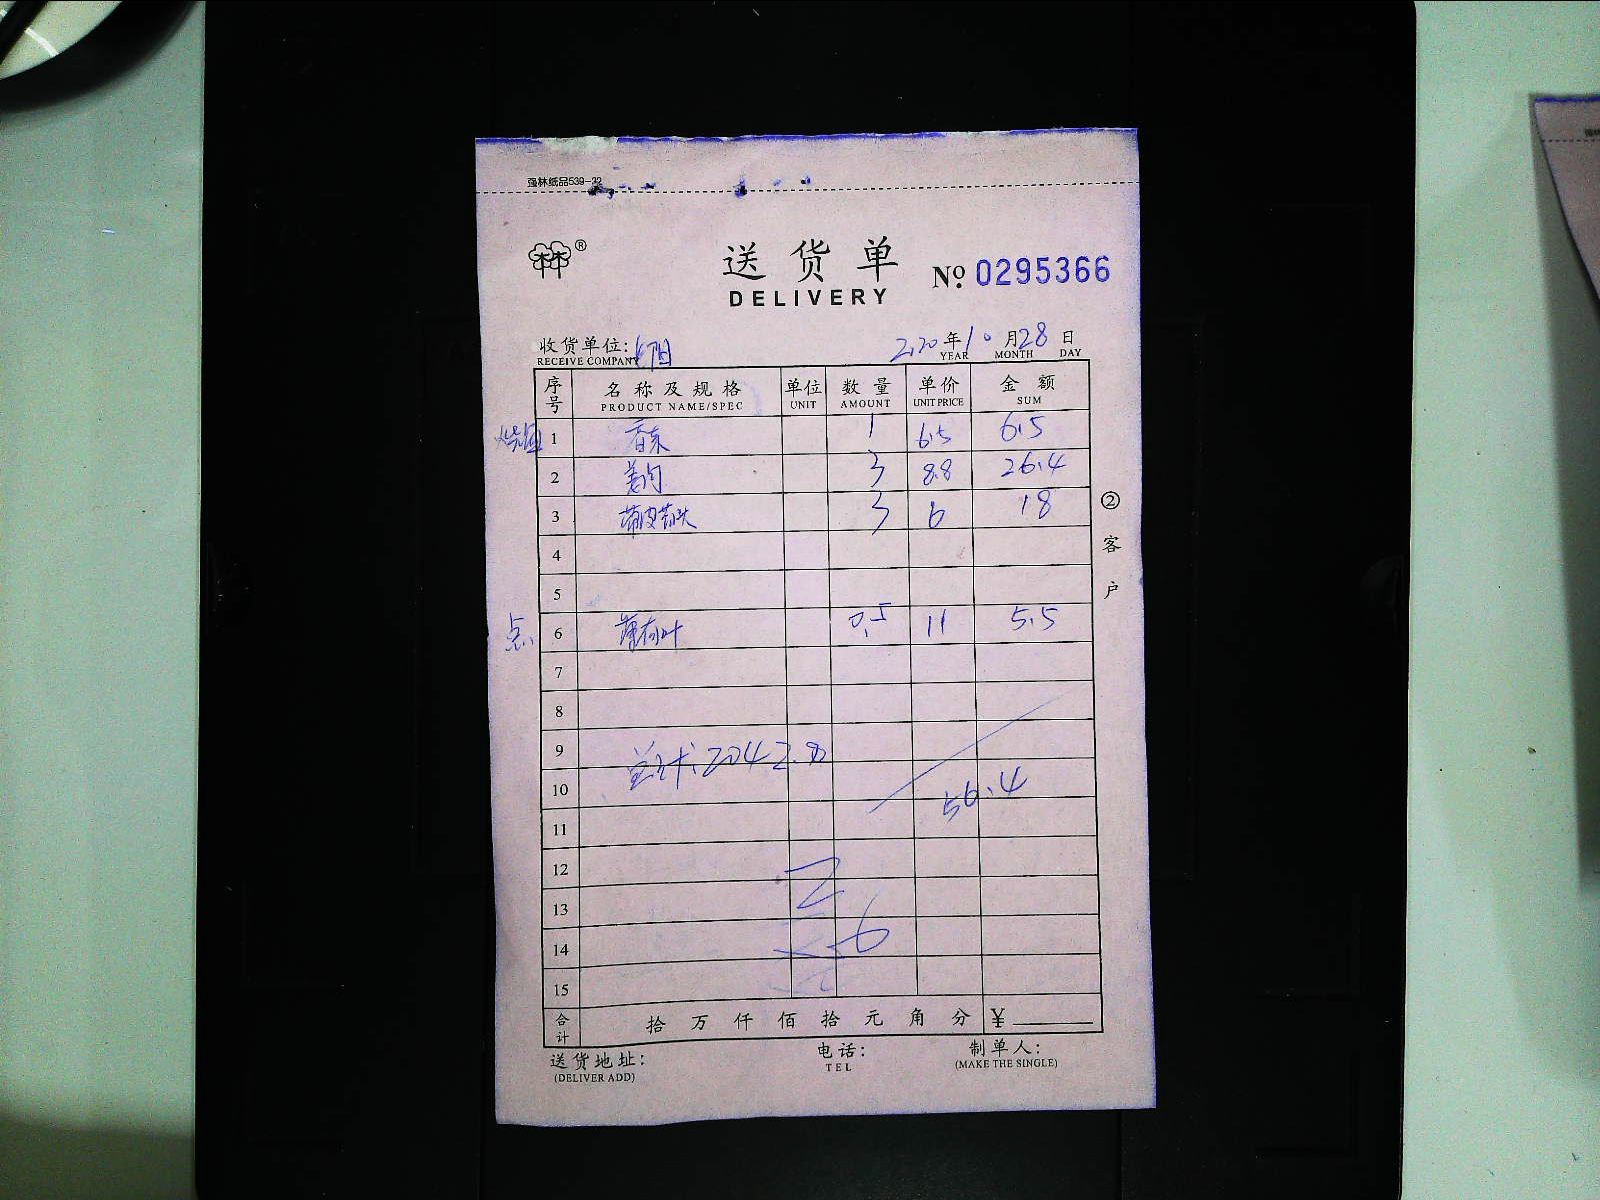 强林纸品539-32
林林®
送货单
DELIVERY
№ 0295366
收货单位:
RECEIVE COMPANY
2020年10月28日
YEAR MONTH DAY
序号 名称及规格 单位 数量 单价 金额
PRODUCT NAME/SPEC UNIT AMOUNT UNIT PRICE SUM
1 香东 1 6.5 6.5
2 姜肉 3 8.8 26.4
3 带皮 3 6 18
4
5
点 6 薄荷叶 0.5 11 5.5
7
8
9
总计: 2042.8
10
56.4
11
12
13
14
6
15
合计 拾 万 仟 佰 拾 元 角 分 ¥
送货地址:
(DELIVER ADD)
电话:
TEL
制单人:
(MAKE THE SINGLE)
②客户